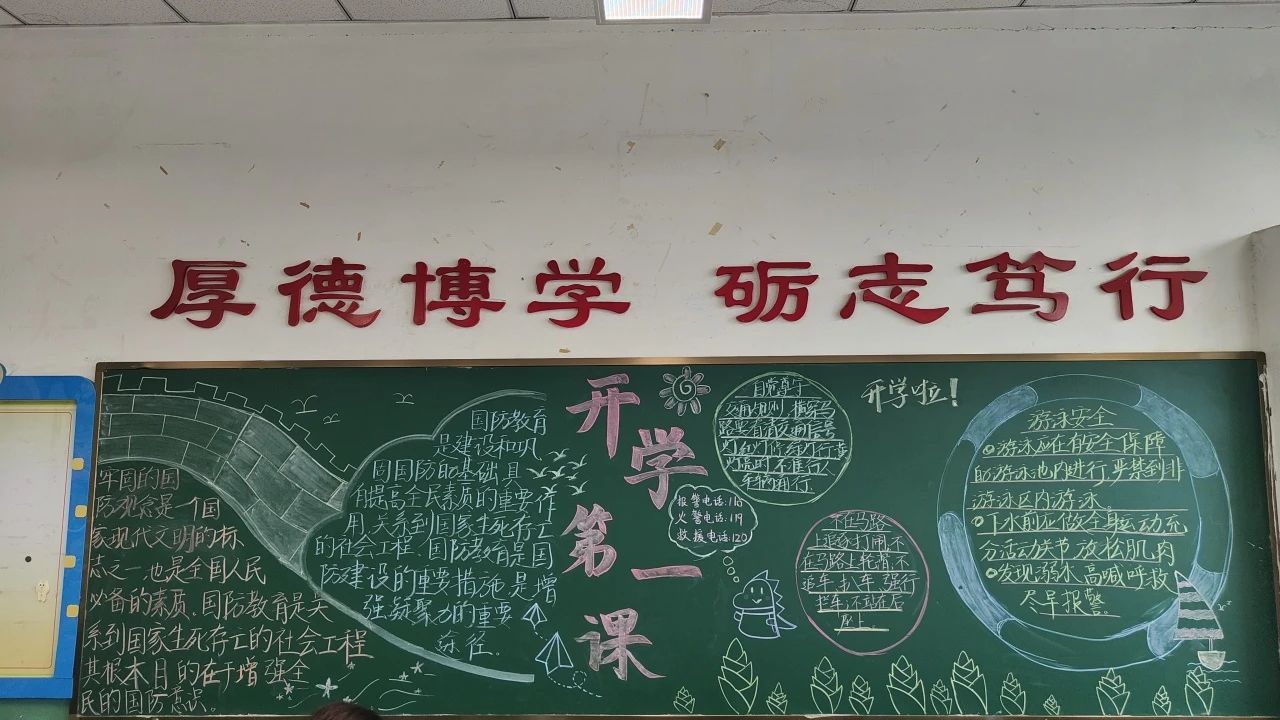 厚德博学 砺志笃行
牢固的国
防观念是一个国
家现代文明的标
志之一.也是全国人民
必备的素质.国防教育是关
系到国家生死存亡的社会工程
其根本目的在于增强全
民的国防意识。
国防教育
是建设和巩
固国防的基础.具
有提高全民素质的重要作
用.关系到国家生死存亡
的社会工程.国防教育是国
防建设的重要措施.是增
强凝聚力的重要
途径。
开学第一课
自觉遵守
交通规则.横穿马
路要看清交通信号
报警电话:110
火警电话:119
救援电话:120
不在马路
上追逐打闹.不
在马路上轮滑.不
追车.扒车.强行
拦车.不站在后
开学啦!
游泳安全
游泳应在有安全保障
的游泳池内进行,严禁到非
游泳区内游泳.
下水前应做全身运动,充
分活动关节.放松肌肉
发现溺水.高喊呼救
尽早报警.